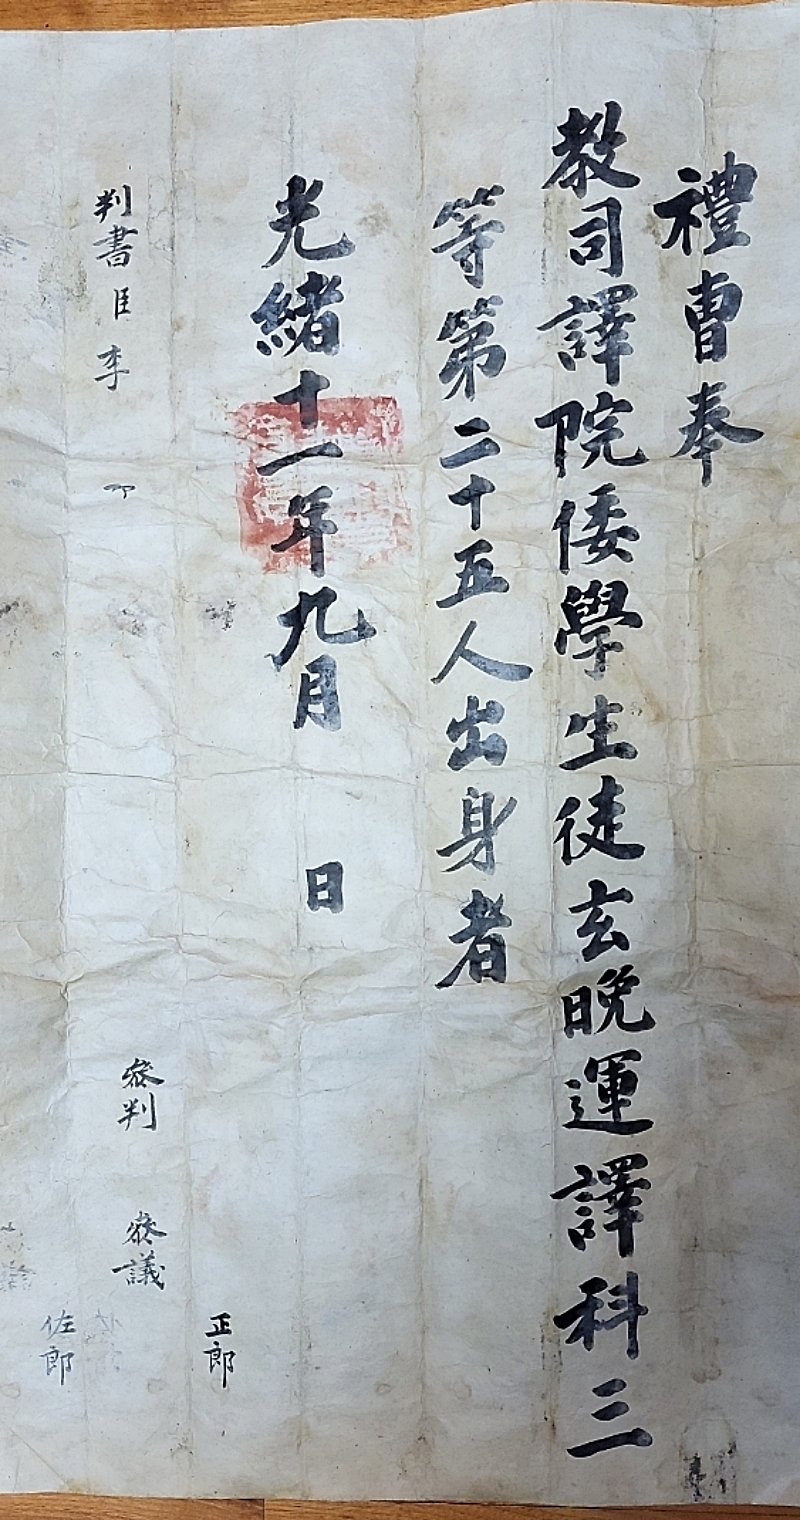 禮曹奉
教司譯院倭學生徒玄晩運譯科三
等第二十五人出身者
光緒十一年九月 日
判書臣李
參判
參議
正郎
佐郎